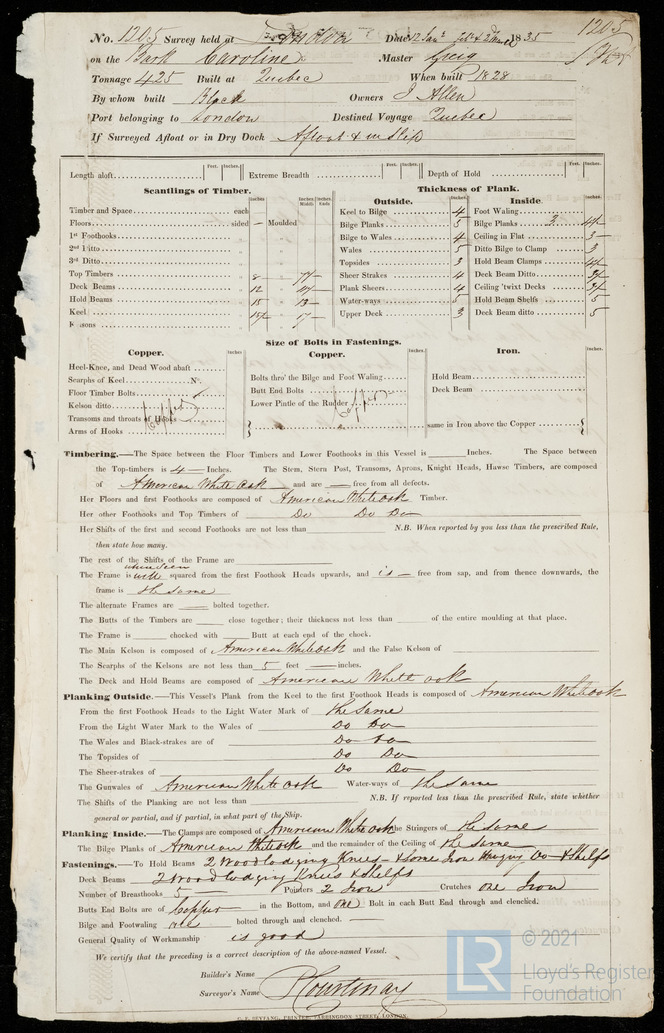 No. 1205 Survey held at London Date 12 Jan.y Feb. & 2 March 1835 1205
on the Bark Caroline Master Greig
Tonnage 425 Built at Quebec When built 1828
By whom built Black Owners J Allen
Port belonging to London Destined Voyage Quebec
If Surveyed Afloat or in Dry Dock Afloat & in slip
Length aloft Feet. Inches. Extreme Breadth Feet. Inches. Depth of Hold Feet. Inches.
Scantlings of Timber.
Inches Inches. Middle. Inches. Ends.
Timber and Space each
Floors sided — Moulded
1st Foothooks
2nd Ditto
3rd Ditto
Top Timbers 8
Deck Beams 12
Hold Beams 15 13
Keel 17
Kelsons
Thickness of Plank.
Outside. Inches
Keel to Bilge 4
Bilge Planks 5
Bilge to Wales 4
Wales 5
Topsides 3
Sheer Strakes 4
Plank Sheers 4
Water-ways 5
Upper Deck 3
Inside. Inches.
Foot Waling
Bilge Planks 3 4½
Ceiling in Flat 3
Ditto Bilge to Clamp 3
Hold Beam Clamps 4½
Deck Beam Ditto 3½
Ceiling 'twixt Decks 3½
Hold Beam Shelfs 5
Deck Beam ditto 5
Size of Bolts in Fastenings.
Copper. Inches
Heel-Knee, and Dead Wood abaft
Scarphs of Keel N.
Floor Timber Bolts
Kelson ditto
Transoms and throats of Hooks
Arms of Hooks
Copper
Copper. Inches
Bolts thro' the Bilge and Foot Waling
Butt End Bolts
Lower Pintle of the Rudder
Copper
Iron. Inches.
Hold Beam
Deck Beam
same in Iron above the Copper
Timbering.—The Space between the Floor Timbers and Lower Foothooks in this Vessel is Inches. The Space between
the Top-timbers is 4 Inches. The Stem, Stern Post, Transoms, Aprons, Knight Heads, Hawse Timbers, are composed
of American White Oak and are — free from all defects.
Her Floors and first Foothooks are composed of American White Oak Timber.
Her other Foothooks and Top Timbers of Do Do Do
Her Shifts of the first and second Foothooks are not less than N.B. When reported by you less than the prescribed Rule,
then state how many.
The rest of the Shifts of the Frame are
The Frame is well squared from the first Foothook Heads upwards, and is — free from sap, and from thence downwards, the
frame is the same
The alternate Frames are — bolted together.
The Butts of the Timbers are close together; their thickness not less than of the entire moulding at that place.
The Frame is chocked with Butt at each end of the chock.
The Main Kelson is composed of American White oak and the False Kelson of
The Scarphs of the Kelsons are not less than 5 feet — inches.
The Deck and Hold Beams are composed of American White oak
Planking Outside.—This Vessel's Plank from the Keel to the first Foothook Heads is composed of American White oak
From the first Foothook Heads to the Light Water Mark of the same
From the Light Water Mark to the Wales of Do Do
The Wales and Black-strakes are of Do Do
The Topsides of Do Do
The Sheer-strakes of Do Do
The Gunwales of American White Oak Water-ways of the same
The Shifts of the Planking are not less than N.B. If reported less than the prescribed Rule, state whether
general or partial, and if partial, in what part of the Ship.
Planking Inside.—The Clamps are composed of American White Oak the Stringers of the same
The Bilge Planks of American White oak and the remainder of the Ceiling of the same
Fastenings.—To Hold Beams 2 Wood lodging Knees & some Iron Hanging Do & Shelfs
Deck Beams 2 Wood lodging Knees & Shelfs
Number of Breasthooks 5 Pointers 2 Iron Crutches one Iron
Butts End Bolts are of Copper in the Bottom, and one Bolt in each Butt End through and clenched.
Bilge and Footwaling are bolted through and clenched.
General Quality of Workmanship is good
We certify that the preceding is a correct description of the above-named Vessel.
Builder's Name
Surveyor's Name P Courtenay
© 2021
LR
Lloyd's Register
Foundation
PRINTER, FARRINGDON STREET, LONDON.